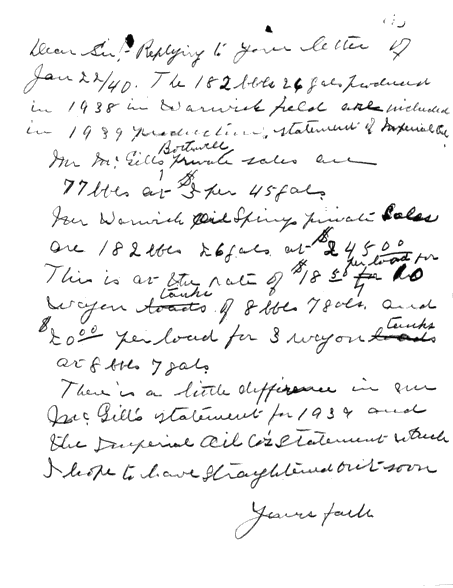 Dear Sir:- Replying to your letter of
Jan 22/40. The 182 bbls 26 gals produced
in 1938 in Warwick field are included
in 1939 production, statement of Imperial Oil
Bothwell
Mr Mc.Gill's private sales are
77 bbls at $3 per 45 gals
Warwick Oil Springs private Sales
are 182 bbls 26 gals at $245.00
per load for
This is at the rate of $18.50 for 10
tanks
wagon loads of 8 bbls 7 gals. and
tanks
$20.00 per load for 3 wagon loads
at 8 bbls 7 gals
There is a little difference in our
Mc.Gill's statement for 1939 and
the Imperial Oil Co's Statement which
I hope to have straightened out soon
Yours faith